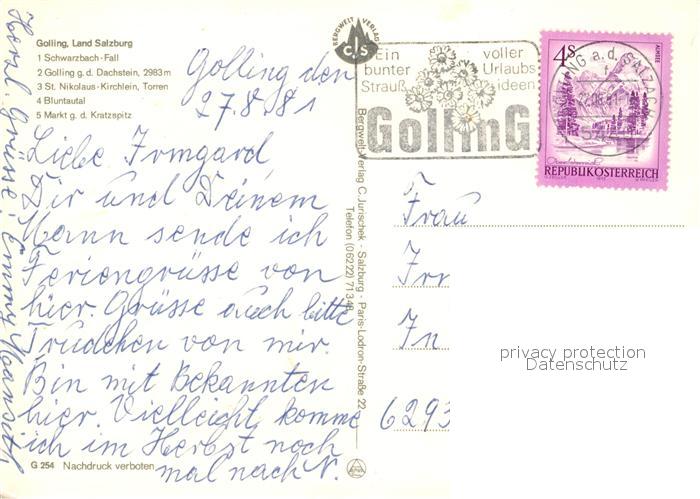 Golling, Land Salzburg
1 Schwarzbach-Fall
2 Golling g. d. Dachstein, 2983 m
3 St. Nikolaus-Kirchlein, Torren
4 Bluntautal
5 Markt g. d. Kratzspitz
Golling den
27.8.81
Liebe Irmgard
Dir und Deinem
Mann sende ich
Feriengrüsse von
hier. Grüsse auch bitte
Trudchen von mir.
Bin mit Bekannten
hier. Vielleicht komme
ich im Herbst noch
mal nach N.
Herzl. Grüsse
G 254 Nachdruck verboten
BERGWELT VERLAG
CJS
Bergwelt-Verlag C. Jurischek - Salzburg - Paris-Lodron-Straße 22
Telefon (06222) 71346
Ein voller
bunter Urlaubs
Strauß ideen
GollinG
4 S
ALMSEE
REPUBLIK ÖSTERREICH
Frau
Irr
In
6293
privacy protection
Datenschutz